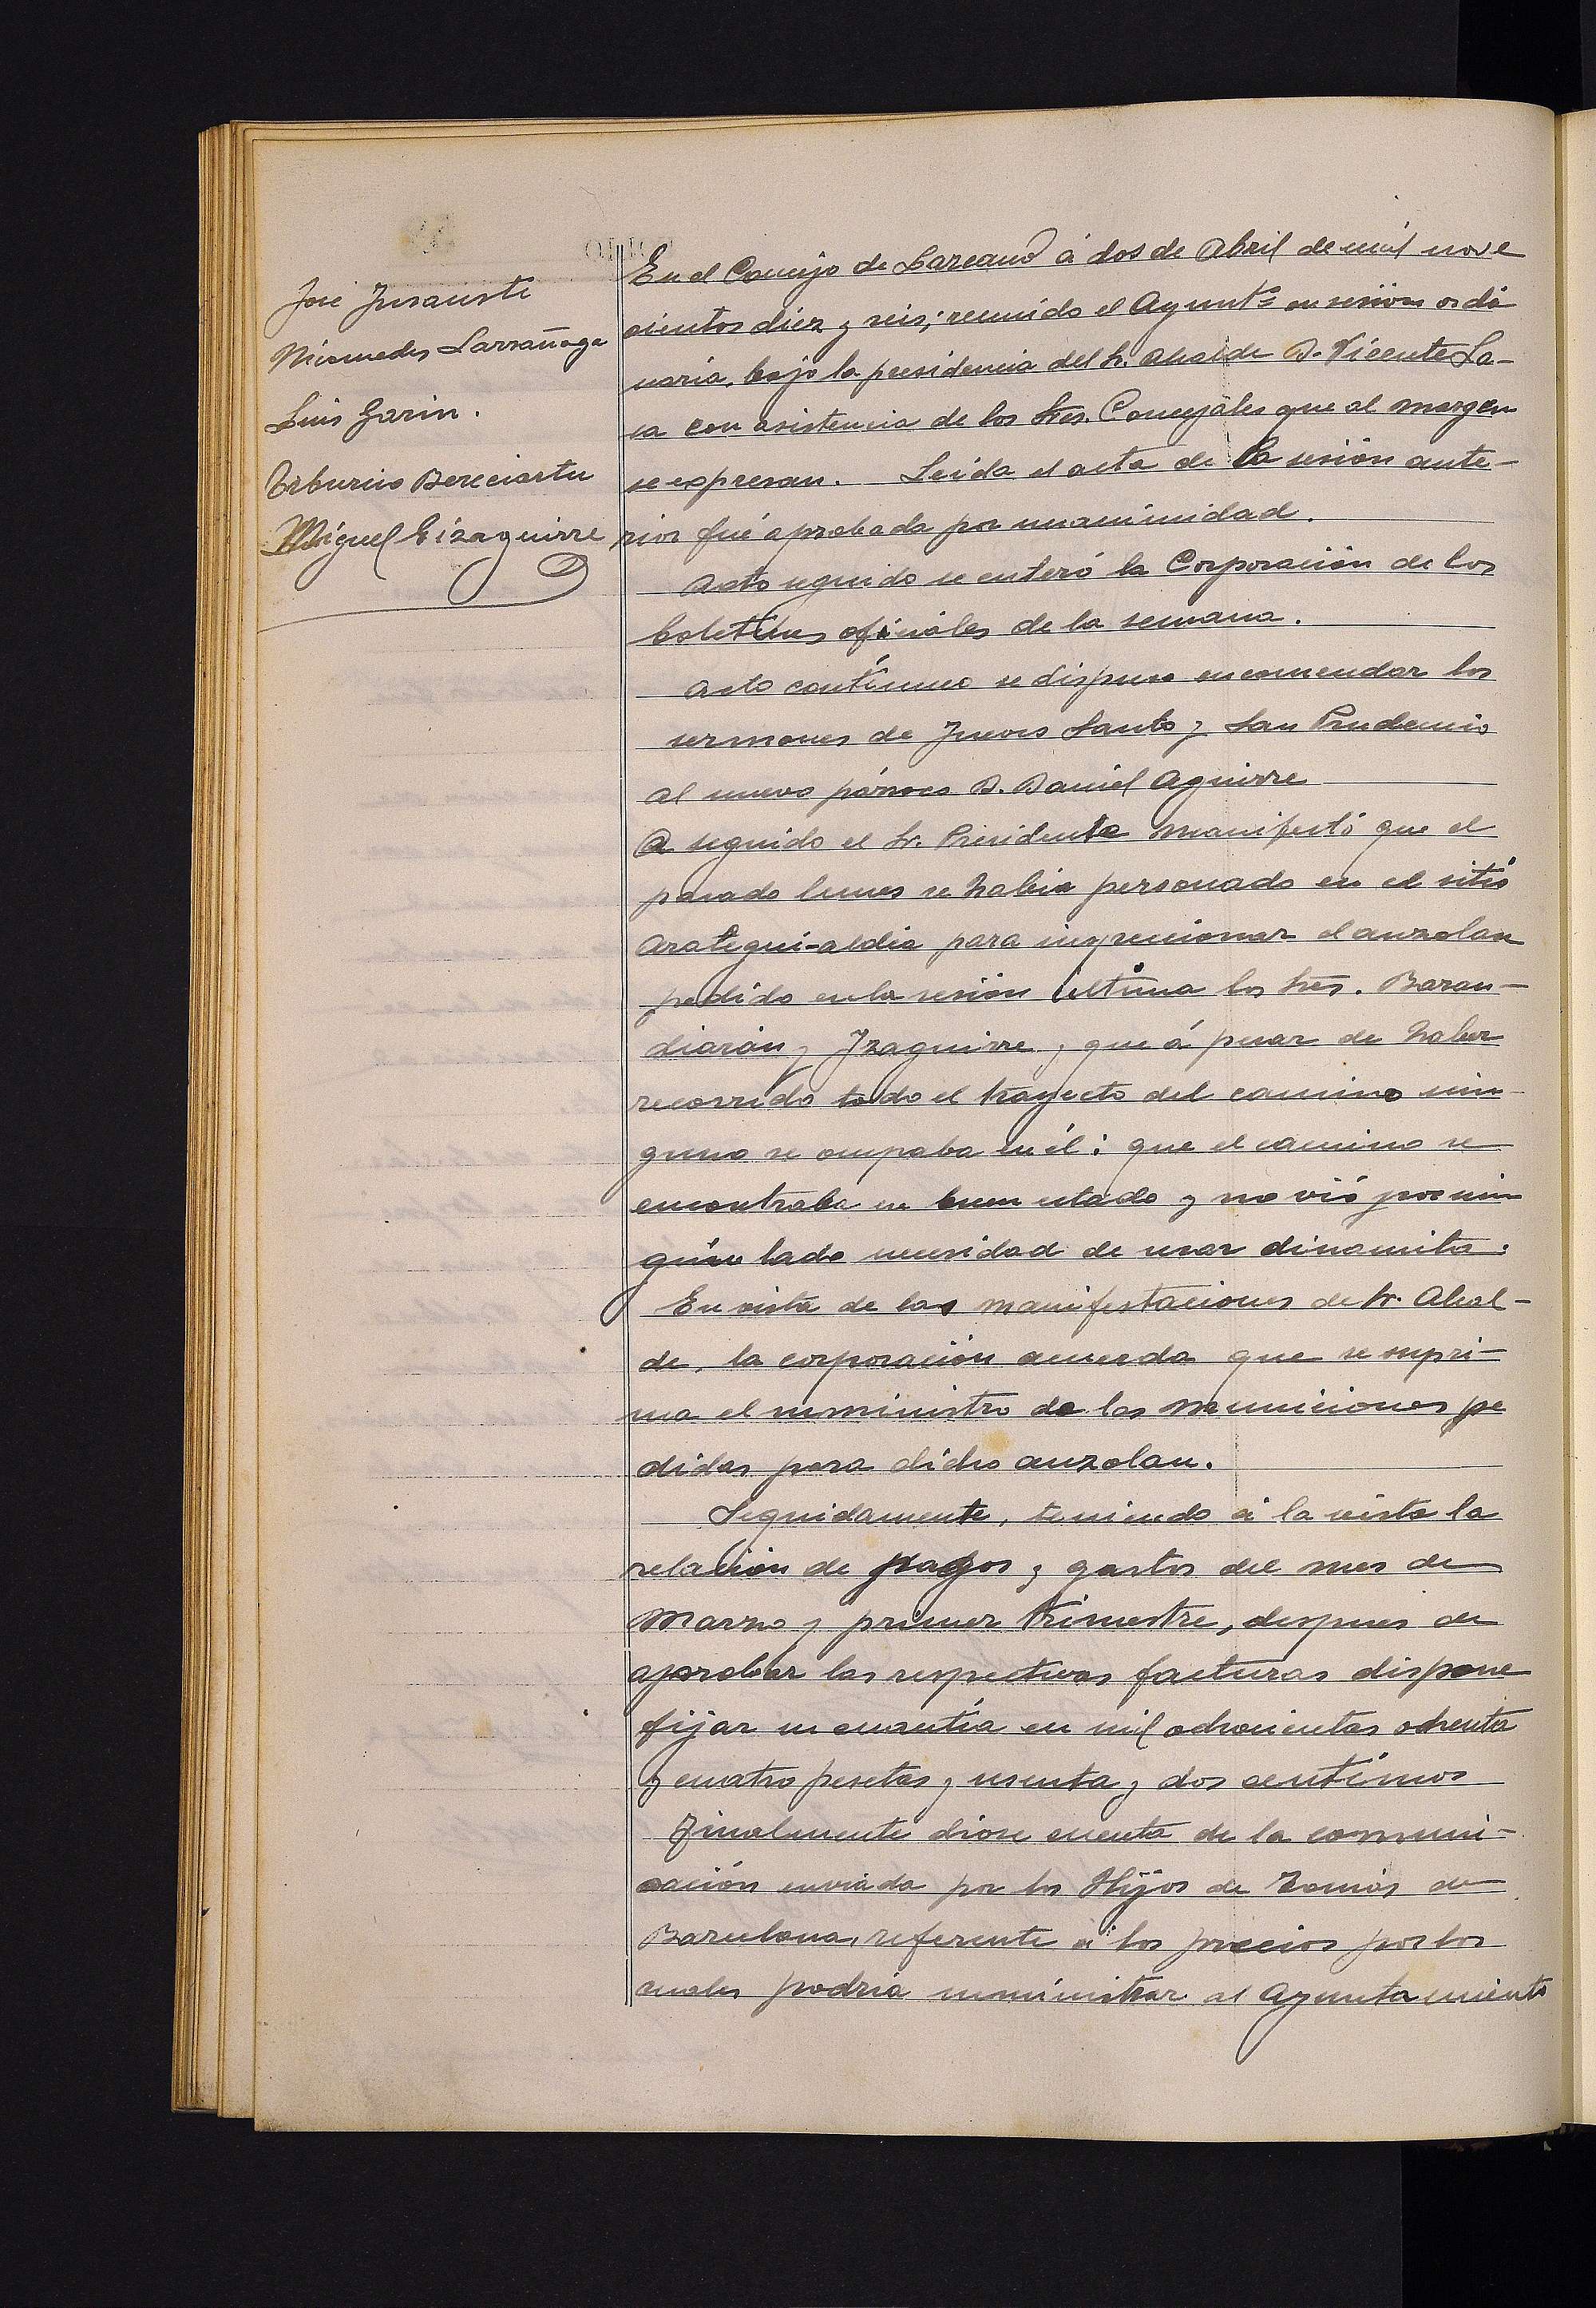 José Insausti
Nicomedes Larrañaga
Luis Garin.
Tiburcio Bereciartu
Miguel Eizaguirre
En el Concejo de Lazcano á dos de Abril de mil nove
cientos diez y seis; reunido el Ayuntº en sesión ordi
naria, bajo la presidencia del Sr. Alcalde D. Vicente La-
sa con asistencia de los Sres. Concejales que al margen
se expresan. Leida el acta de la sesión ante-
rior fué aprobada por unanimidad.
Acto seguido se enteró la Corporación de los
boletines oficiales de la semana.
Acto contínuo se dispuso encomendar los
sermones de Jueves Santo y San Prudencio
al nuevo párroco D. Daniel Aguirre
A seguido el Sr. Presidente manifestó que el
pasado lunes se habia personado en el sitio
Arategui-aldia para inspeccionar el auzolan
pedido en la sesión última los Sres. Baran-
diarán y Izaguirre, que á pesar de haber
recorrido todo el trayecto del camino nin
guno se ocupaba en él: que el camino se
encontraba en buen estado y no vió por nin
gún lado necesidad de usar dinamita.
En vista de las manifestaciones de Sr. Alcal-
de, la corporación acuerda que se supri-
ma el suministro de las municiones pe
didas para dicho auzolan.
Seguidamente, teniendo á la vista la
relación de pagos y gastos del mes de
Marzo y primer trimestre, despues de
aprobar las respectivas facturas dispone
fijar su cuantía en mil ochocientas ochenta
y cuatro pesetas y sesenta y dos centímos
Finalmente diose cuenta de la comuni-
cación enviada por los Hijos de Tomás de
Barcelona, referente á los precios por los
cuales podria suministrar al Ayuntamiento